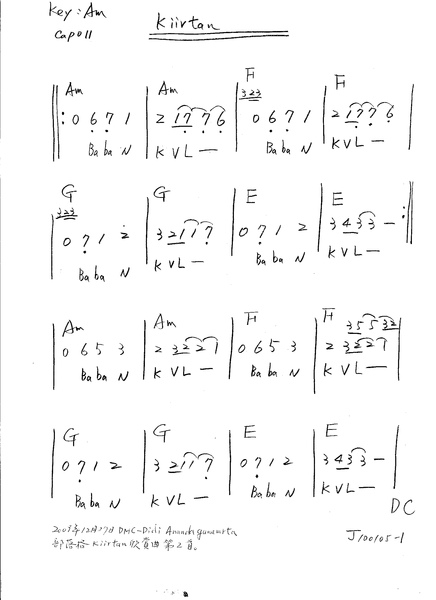 Key: Am
Capo 11
Kiirtan
Am Am F F
323
‖: 0 6 7 1 | 2 1 7 7 6 | 0 6 7 1 | 2 1 7 7 6 |
Ba ba N K V L — Ba ba N K V L —
G G E E
323
0 7 1 2 | 3 2 1 1 7 | 0 7 1 2 | 3 4 3 3 — :‖
Ba ba N K V L — Ba ba N K V L —
Am Am F F
3 5 5 3 2
0 6 5 3 | 2 3 2 2 1 | 0 6 5 3 | 2 3 2 2 1 |
Ba ba N K V L — Ba ba N K V L —
G G E E
0 7 1 2 | 3 2 1 1 7 | 0 7 1 2 | 3 4 3 3 — |
Ba ba N K V L — Ba ba N K V L —
DC
2009年12月27日 DMC-Didi Ananda
部落格 Kiirtan 欣賞曲 第2首。
J100105-1